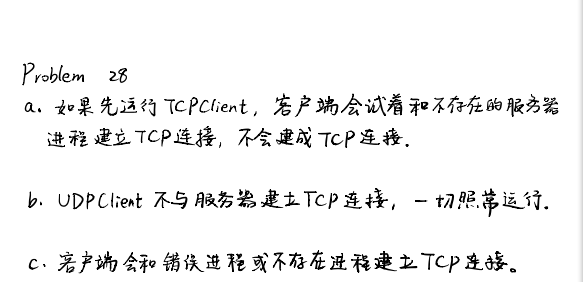 Problem 28
a. 如果先运行TCPClient，客户端会试着和不存在的服务器
进程建立TCP连接，不会建成TCP连接.
b. UDPClient 不与服务器建立TCP连接，一切照常运行.
c. 客户端会和错误进程或不存在进程建立TCP连接。